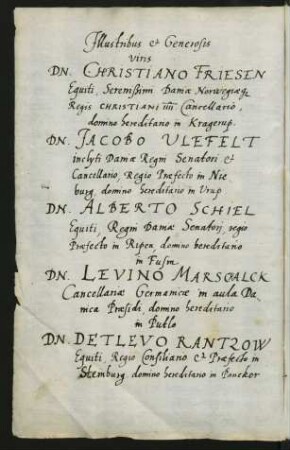 Illustribus et Generosis
viris
DN. CHRISTIANO FRIESEN
Equiti, Serenissimi Daniæ Norwegiæq;
Regis CHRISTIANI IIII Cancellario,
domino hereditario in Kragerup.
DN. JACOBO ULEFELT
inclyti Daniæ Regni Senatori et
Cancellario, Regio Præfecto in Nie
burg, domino hereditario in Urup.
DN. ALBERTO SCHIEL
Equiti, Regni Daniæ Senatori, regio
Præfecto in Ripen, domino hereditario
in Fusm
DN. LEVINO MARSCALCK
Cancellariæ Germanicæ in aula Da
nica Præsidi, domino hereditario
in Putlo
DN. DETLEVO RANTZOW
Equiti, Regio Consiliario et Præfecto in
Stemburg domino hereditario in Panckor